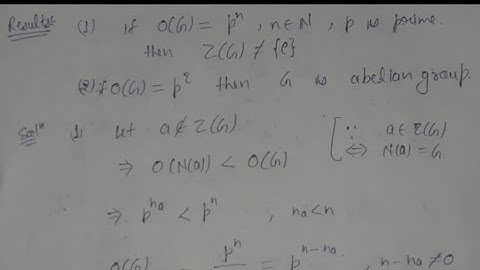 Results (1) if O(G) = pⁿ, n∈N, p is prime.
then Z(G) ≠ {e}
(2) if O(G) = p² then G is abelian group.
Solⁿ 1, let a∉Z(G) [∵ a∈Z(G)
⇒ O(N(a)) < O(G) ⇔ N(a) = G
∴ ⇒ p^{na} < pⁿ , na<n
O(G) pⁿ = p^{n-na}, n-na≠0